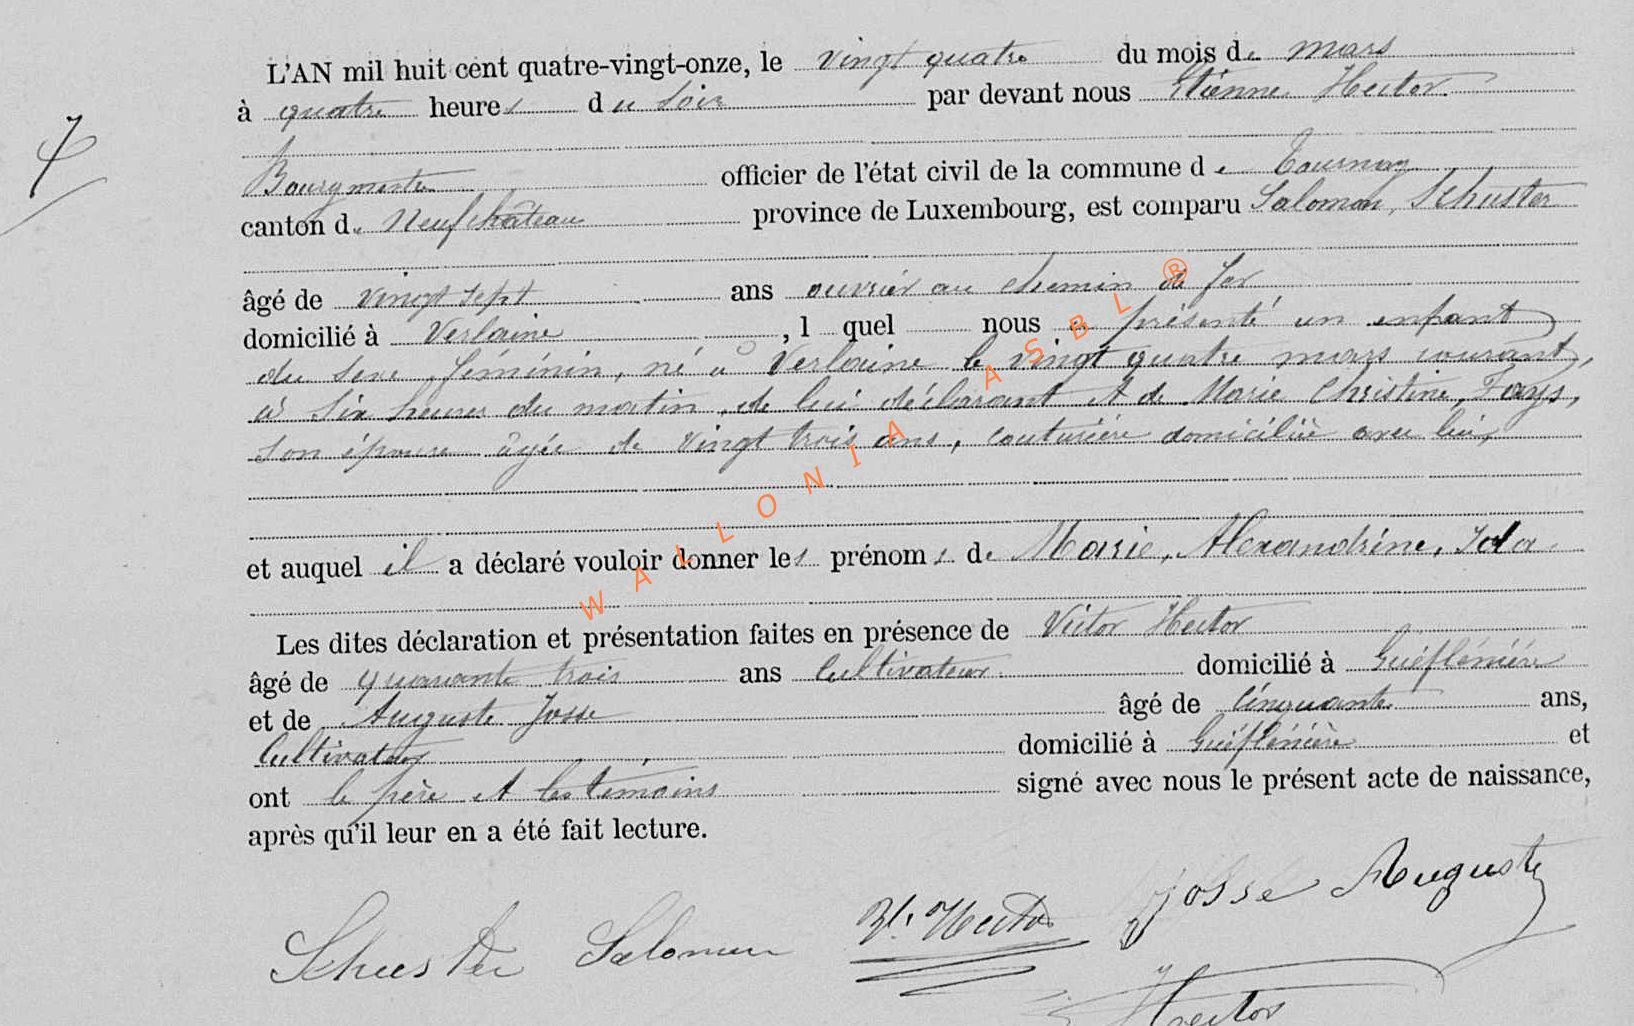 L'AN mil huit cent quatre-vingt-onze, le vingt quatre du mois de mars
à quatre heures du soir par devant nous Etienne Hector
Bourgmestre officier de l'état civil de la commune de Tournay
canton de Neufchâteau province de Luxembourg, est comparu Salomon, Schuster
âgé de vingt sept ans ouvrier au chemin de fer
domicilié à Verlaine, lequel nous a présenté un enfant
du sexe féminin, né à Verlaine le vingt quatre mars courant,
à six heures du matin, de lui déclarant et de Marie Christine, Fays,
son épouse âgée de vingt trois ans, couturière domiciliée avec lui,
et auquel il a déclaré vouloir donner les prénoms de Marie, Alexandrine, Ida
Les dites déclaration et présentation faites en présence de Victor Hector
âgé de quarante trois ans Cultivateur domicilié à
et de Auguste Josse âgé de cinquante ans,
Cultivateur domicilié à et
ont le père et les témoins signé avec nous le présent acte de naissance,
après qu'il leur en a été fait lecture.
Schuster Salomon Vr. Hector Josse Auguste
Hector
WALLONIA ASBL ®